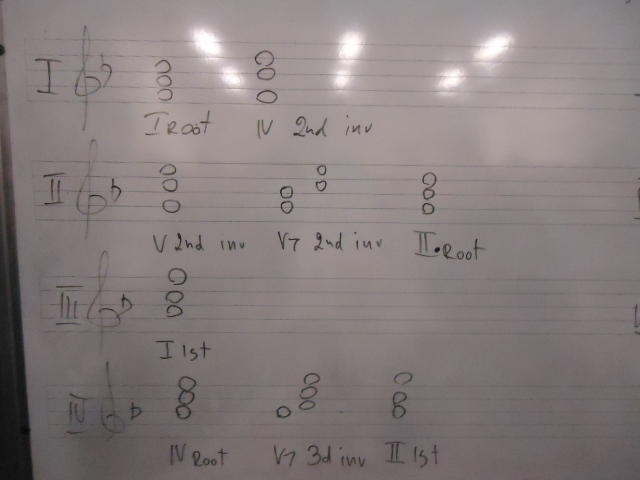 I
I Root IV 2nd inv
II
V 2nd inv V7 2nd inv II Root
III
I 1st
IV
IV Root V7 3d inv II 1st